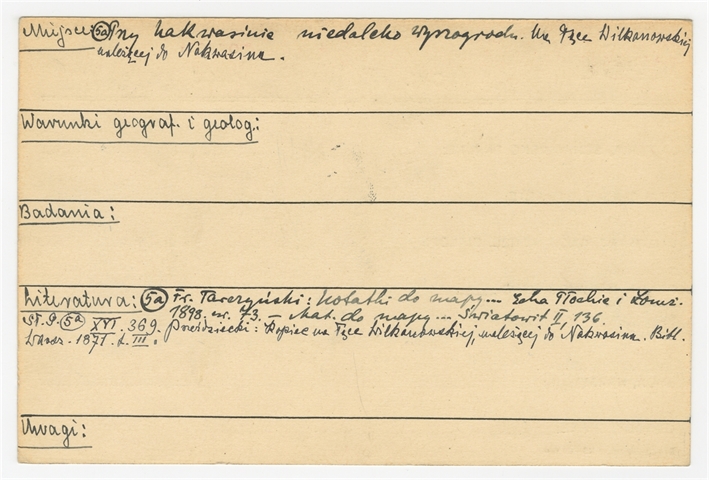 Miejsce: 5a Przy Nakwasinie niedaleko Wyszogrodu. Na Łące Wilkanowskiej
należącej do Nakwasina.
Warunki geograf. i geolog:
Badania:
Literatura: 5a Fr. Tarczyński: Notatki do mapy... Echa Płockie i Łomż.
1898. nr. 73. – Mat. do mapy... Światowit II, 136
Sł. G. 5a XVI. 369. Przeździecki: Kopiec na Łące Wilkanowskiej, należącej do Nakwasina. Bibl.
Warsz. 1871. t. III.
Uwagi: